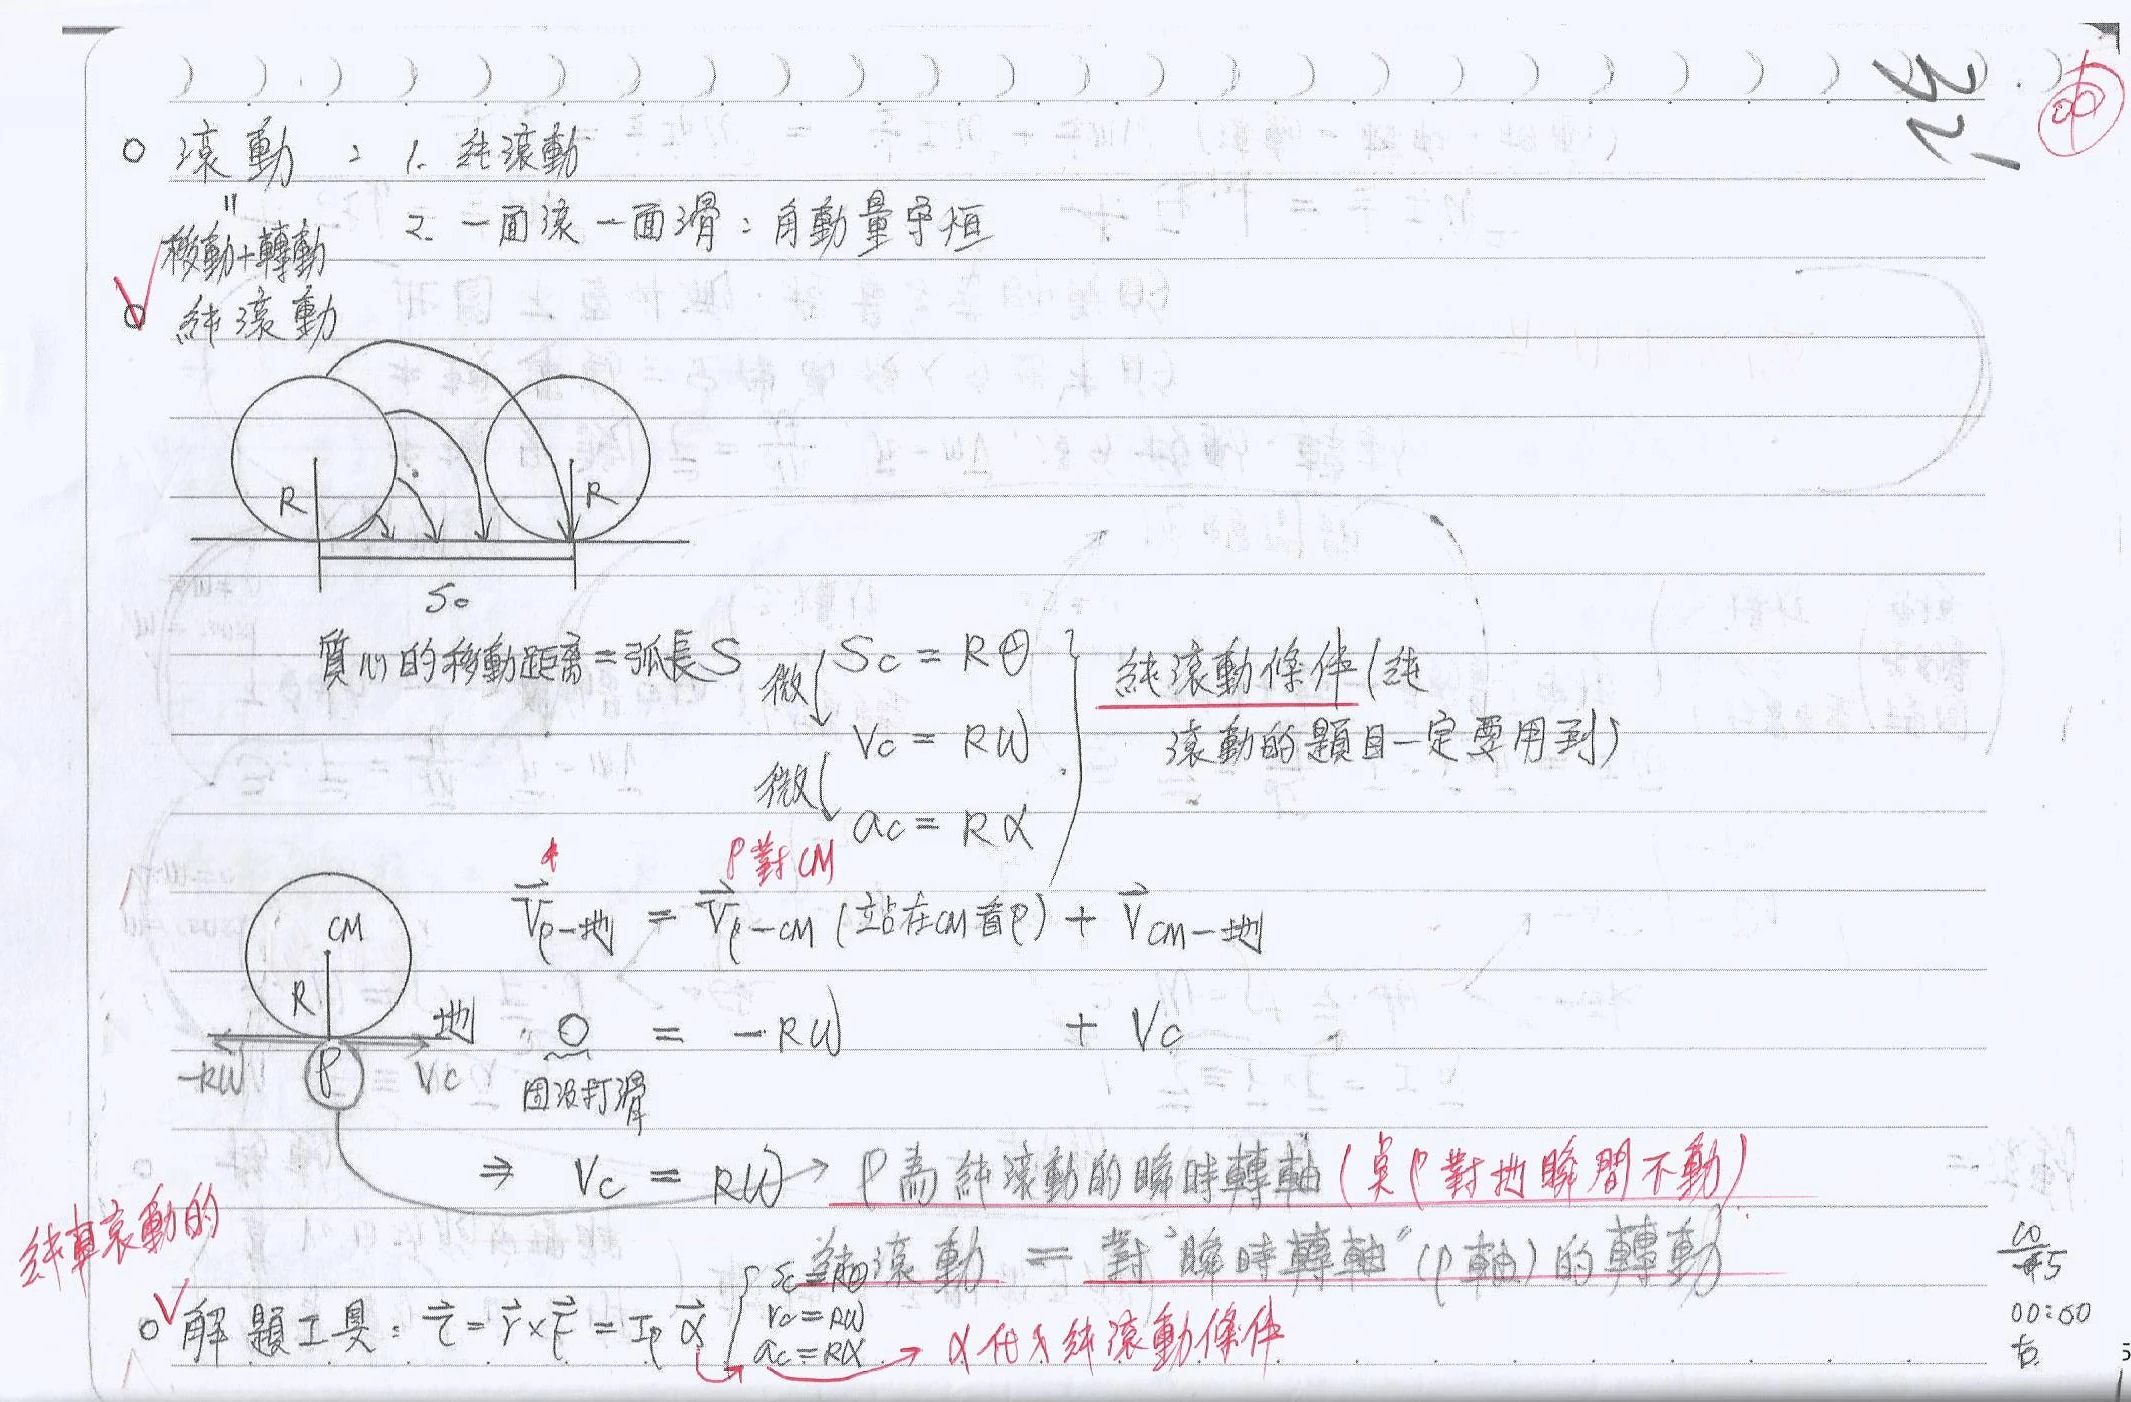 32
滾動：1. 純滾動
=
移動+轉動
2. 一面滾一面滑：角動量守恒
純滾動
R
R
So
質心的移動距離=弧長S
微
Sc = Rθ
微
Vc = Rω
ac = Rα
純滾動條件(純
滾動的題目一定要用到)
P對CM
V⃗P-地 = V⃗P-CM (站在CM看P) + V⃗CM-地
CM
R
地
-Rω
P
Vc
0 = -Rω + Vc
因沒打滑
⇒ Vc = Rω → P為純滾動的瞬時轉軸(點P對地瞬間不動)
純滾動 = 對"瞬時轉軸"(P軸)的轉動
純滾動的
解題工具：τ⃗ = r⃗ × F⃗ = IP α⃗
Sc = Rθ
Vc = Rω
ac = Rα → α代入純滾動條件
00:60
右